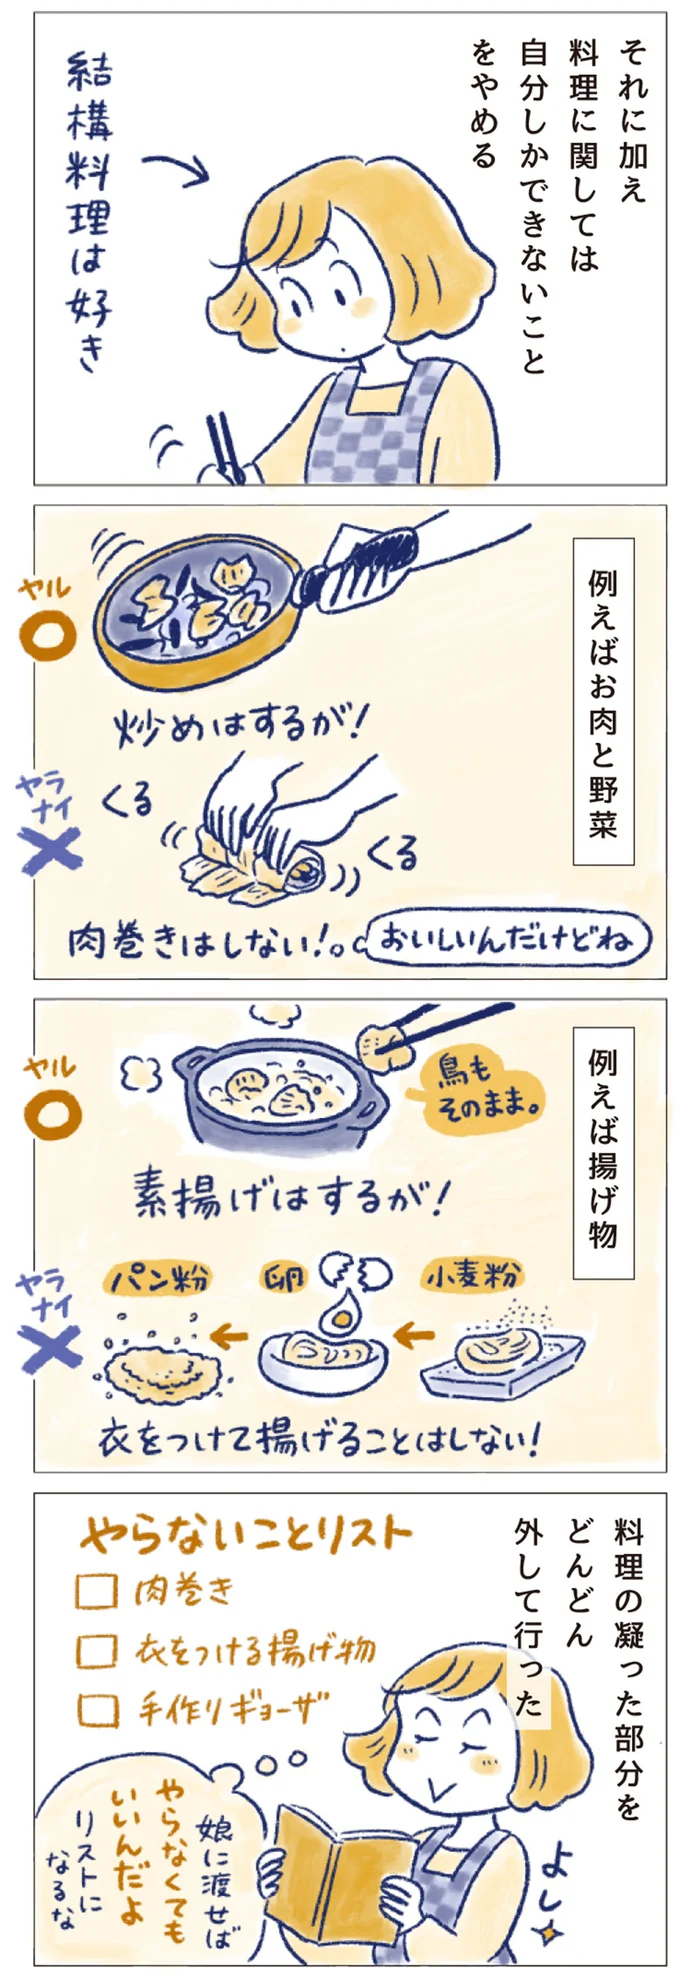 それに加え
料理に関しては
自分しかできないこと
をやめる
結構料理は好き
例えばお肉と野菜
ヤル
炒めはするが!
ヤラ
ナイ
くる
くる
肉巻きはしない!
おいしいんだけどね
例えば揚げ物
ヤル
鳥も
そのまま。
素揚げはするが!
ヤラ
ナイ
小麦粉
卵
パン粉
衣をつけて揚げることはしない!
料理の凝った部分を
どんどん
外して行った
やらないことリスト
肉巻き
衣をつける揚げ物
手作りギョーザ
娘に渡せば
やらなくても
いいんだよ
リストに
なるな
よし